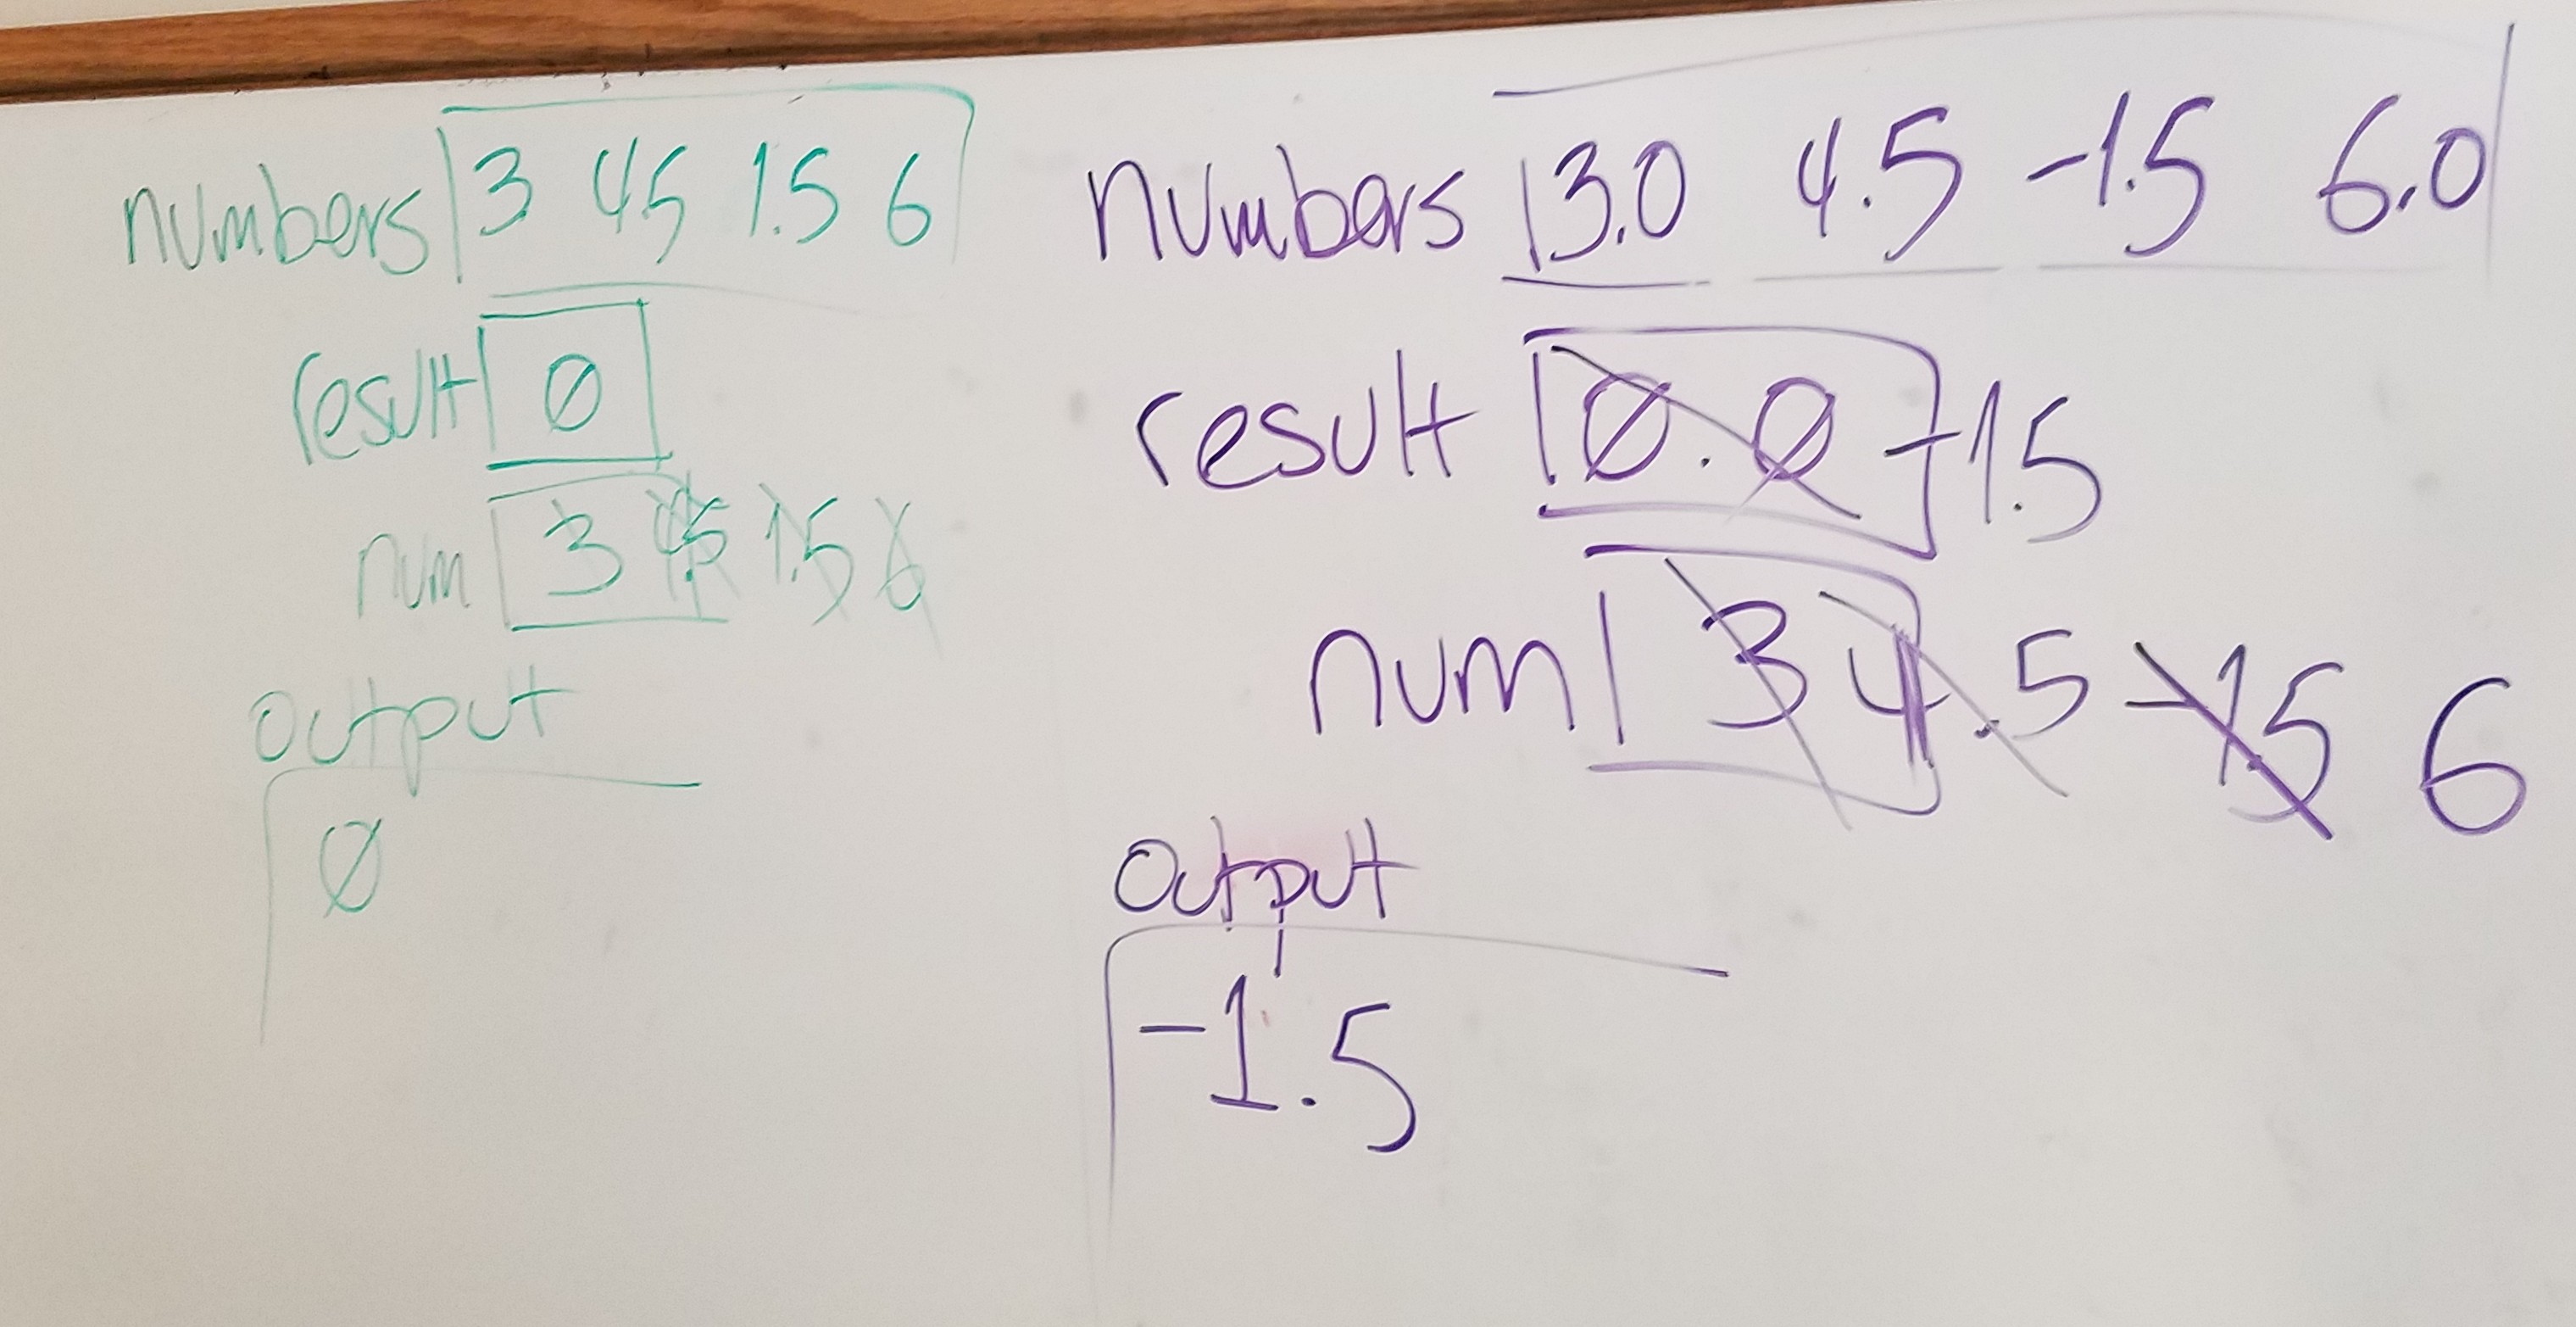 numbers 3 4.5 1.5 6
result 0
num 3 4.5 1.5 6
output
0
numbers 3.0 4.5 -1.5 6.0
result 0.0 -1.5
num 3 4.5 -1.5 6
output
-1.5